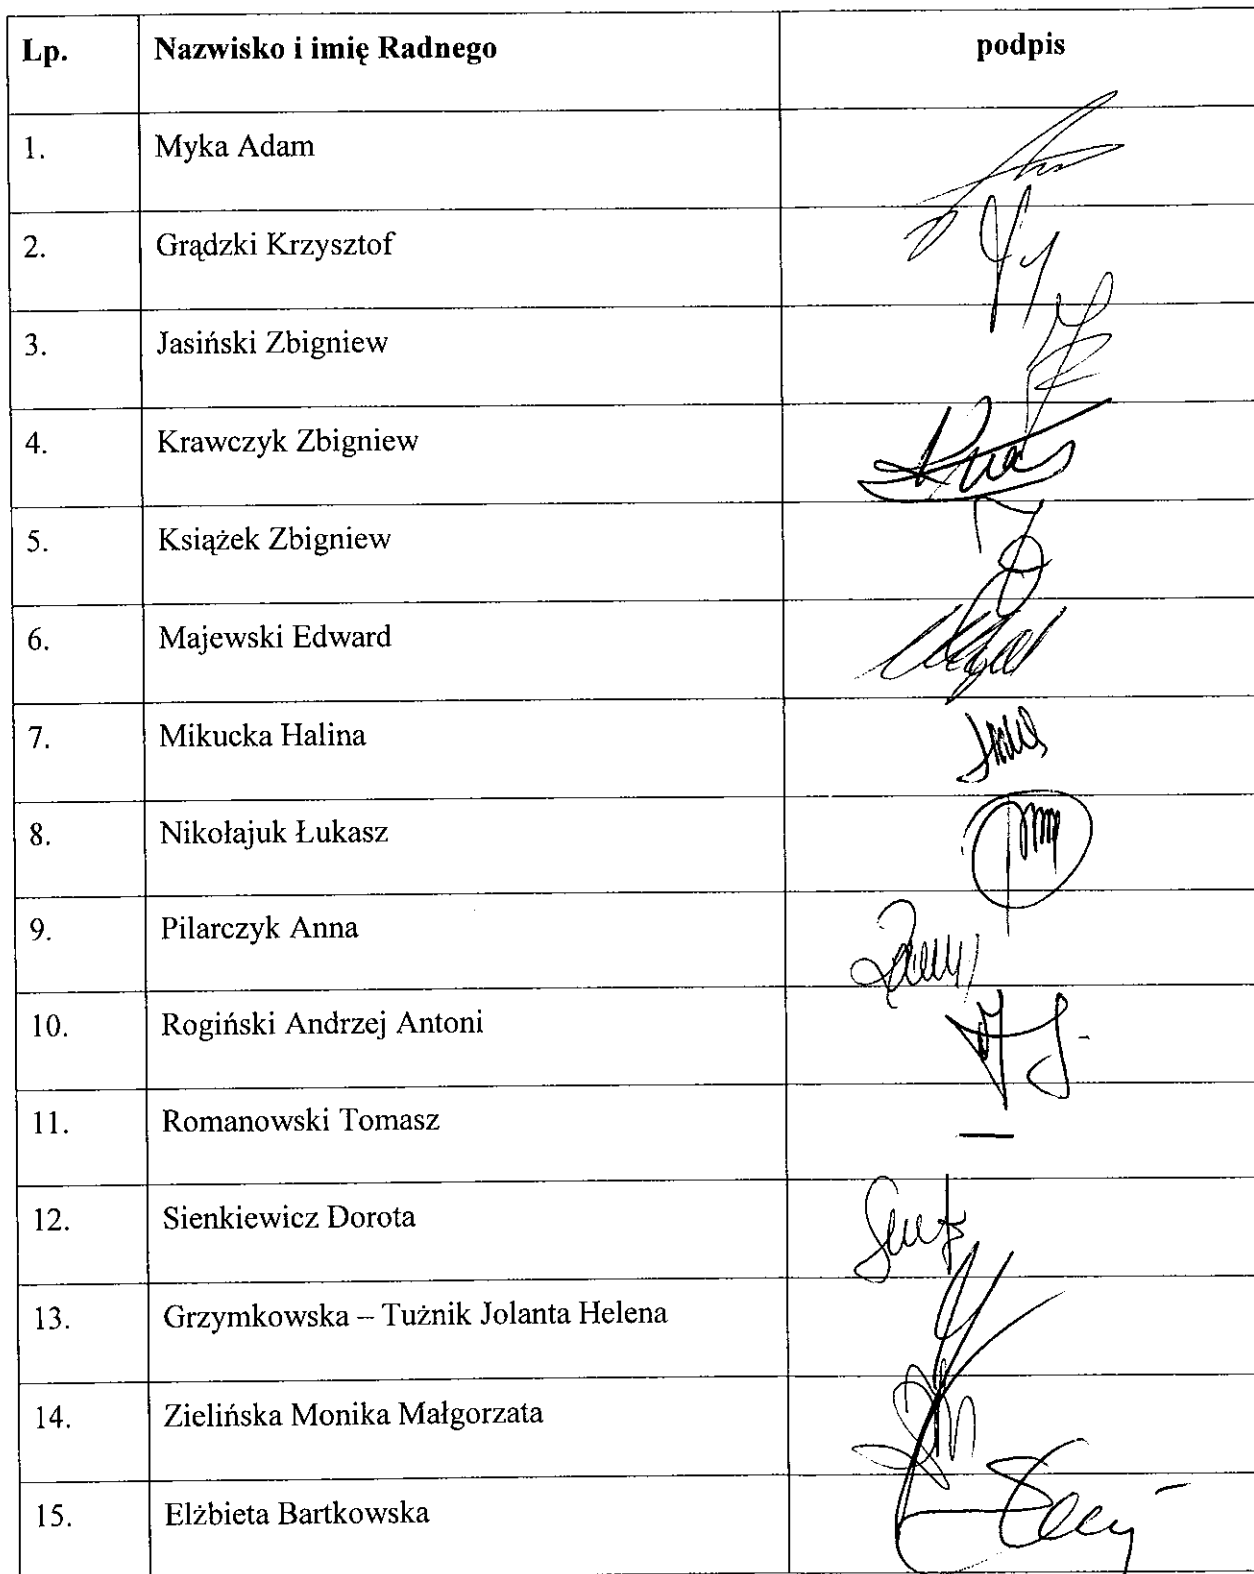 Lp. Nazwisko i imię Radnego podpis
1. Myka Adam
2. Grądzki Krzysztof
3. Jasiński Zbigniew
4. Krawczyk Zbigniew
5. Książek Zbigniew
6. Majewski Edward
7. Mikucka Halina
8. Nikołajuk Łukasz
9. Pilarczyk Anna
10. Rogiński Andrzej Antoni
11. Romanowski Tomasz —
12. Sienkiewicz Dorota
13. Grzymkowska – Tużnik Jolanta Helena
14. Zielińska Monika Małgorzata
15. Elżbieta Bartkowska